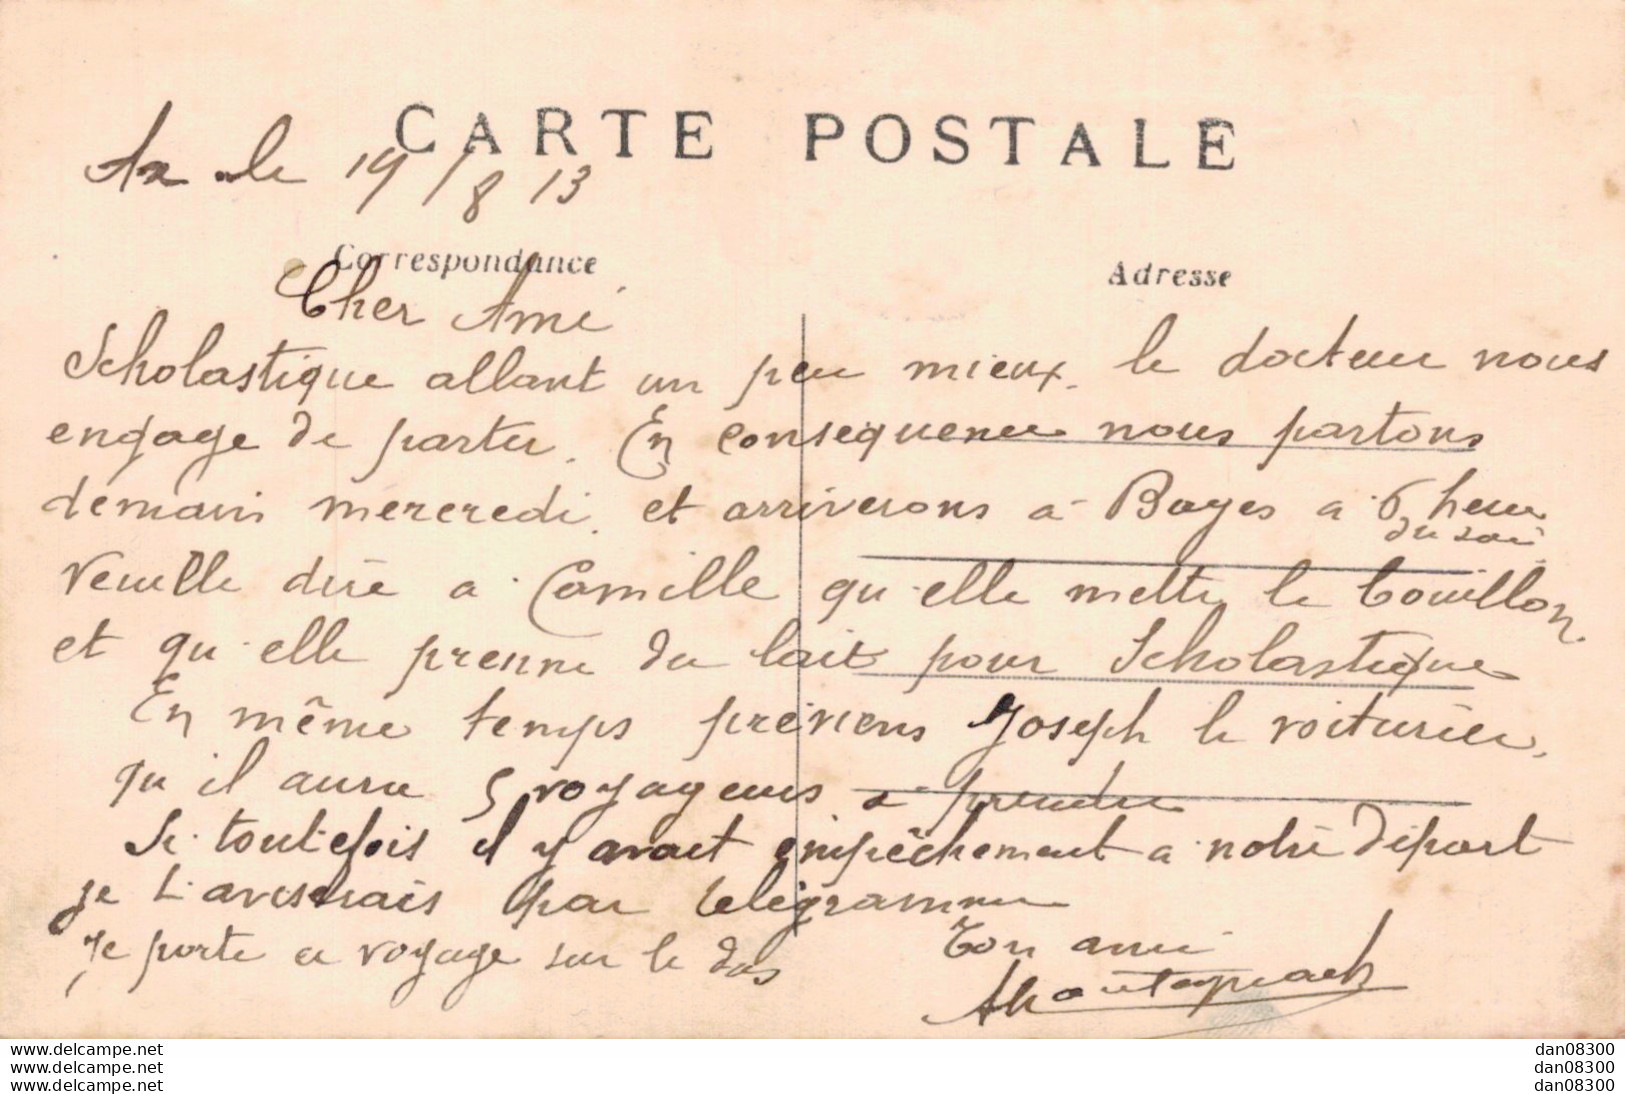 CARTE POSTALE
Ax le 19/8 13
Correspondance
Adresse
Cher Ami
Scholastique allant un peu mieux, le docteur nous
engage de partir. En consequence nous partons
demain mercredi, et arriverons a Bages a 6 heures
du soir
Veuille dire a Camille qu'elle mette le bouillon,
et qu'elle prenne du lait pour Scholastique
En même temps préviens Joseph le voiturier,
qu'il aura 5 voyageurs a prendre
Si toutefois il y avait empêchement a notre départ
je t'aviserais par télégramme
Je porte ce voyage sur le dos
Ton ami
www.delcampe.net
www.delcampe.net
www.delcampe.net
dan08300
dan08300
dan08300